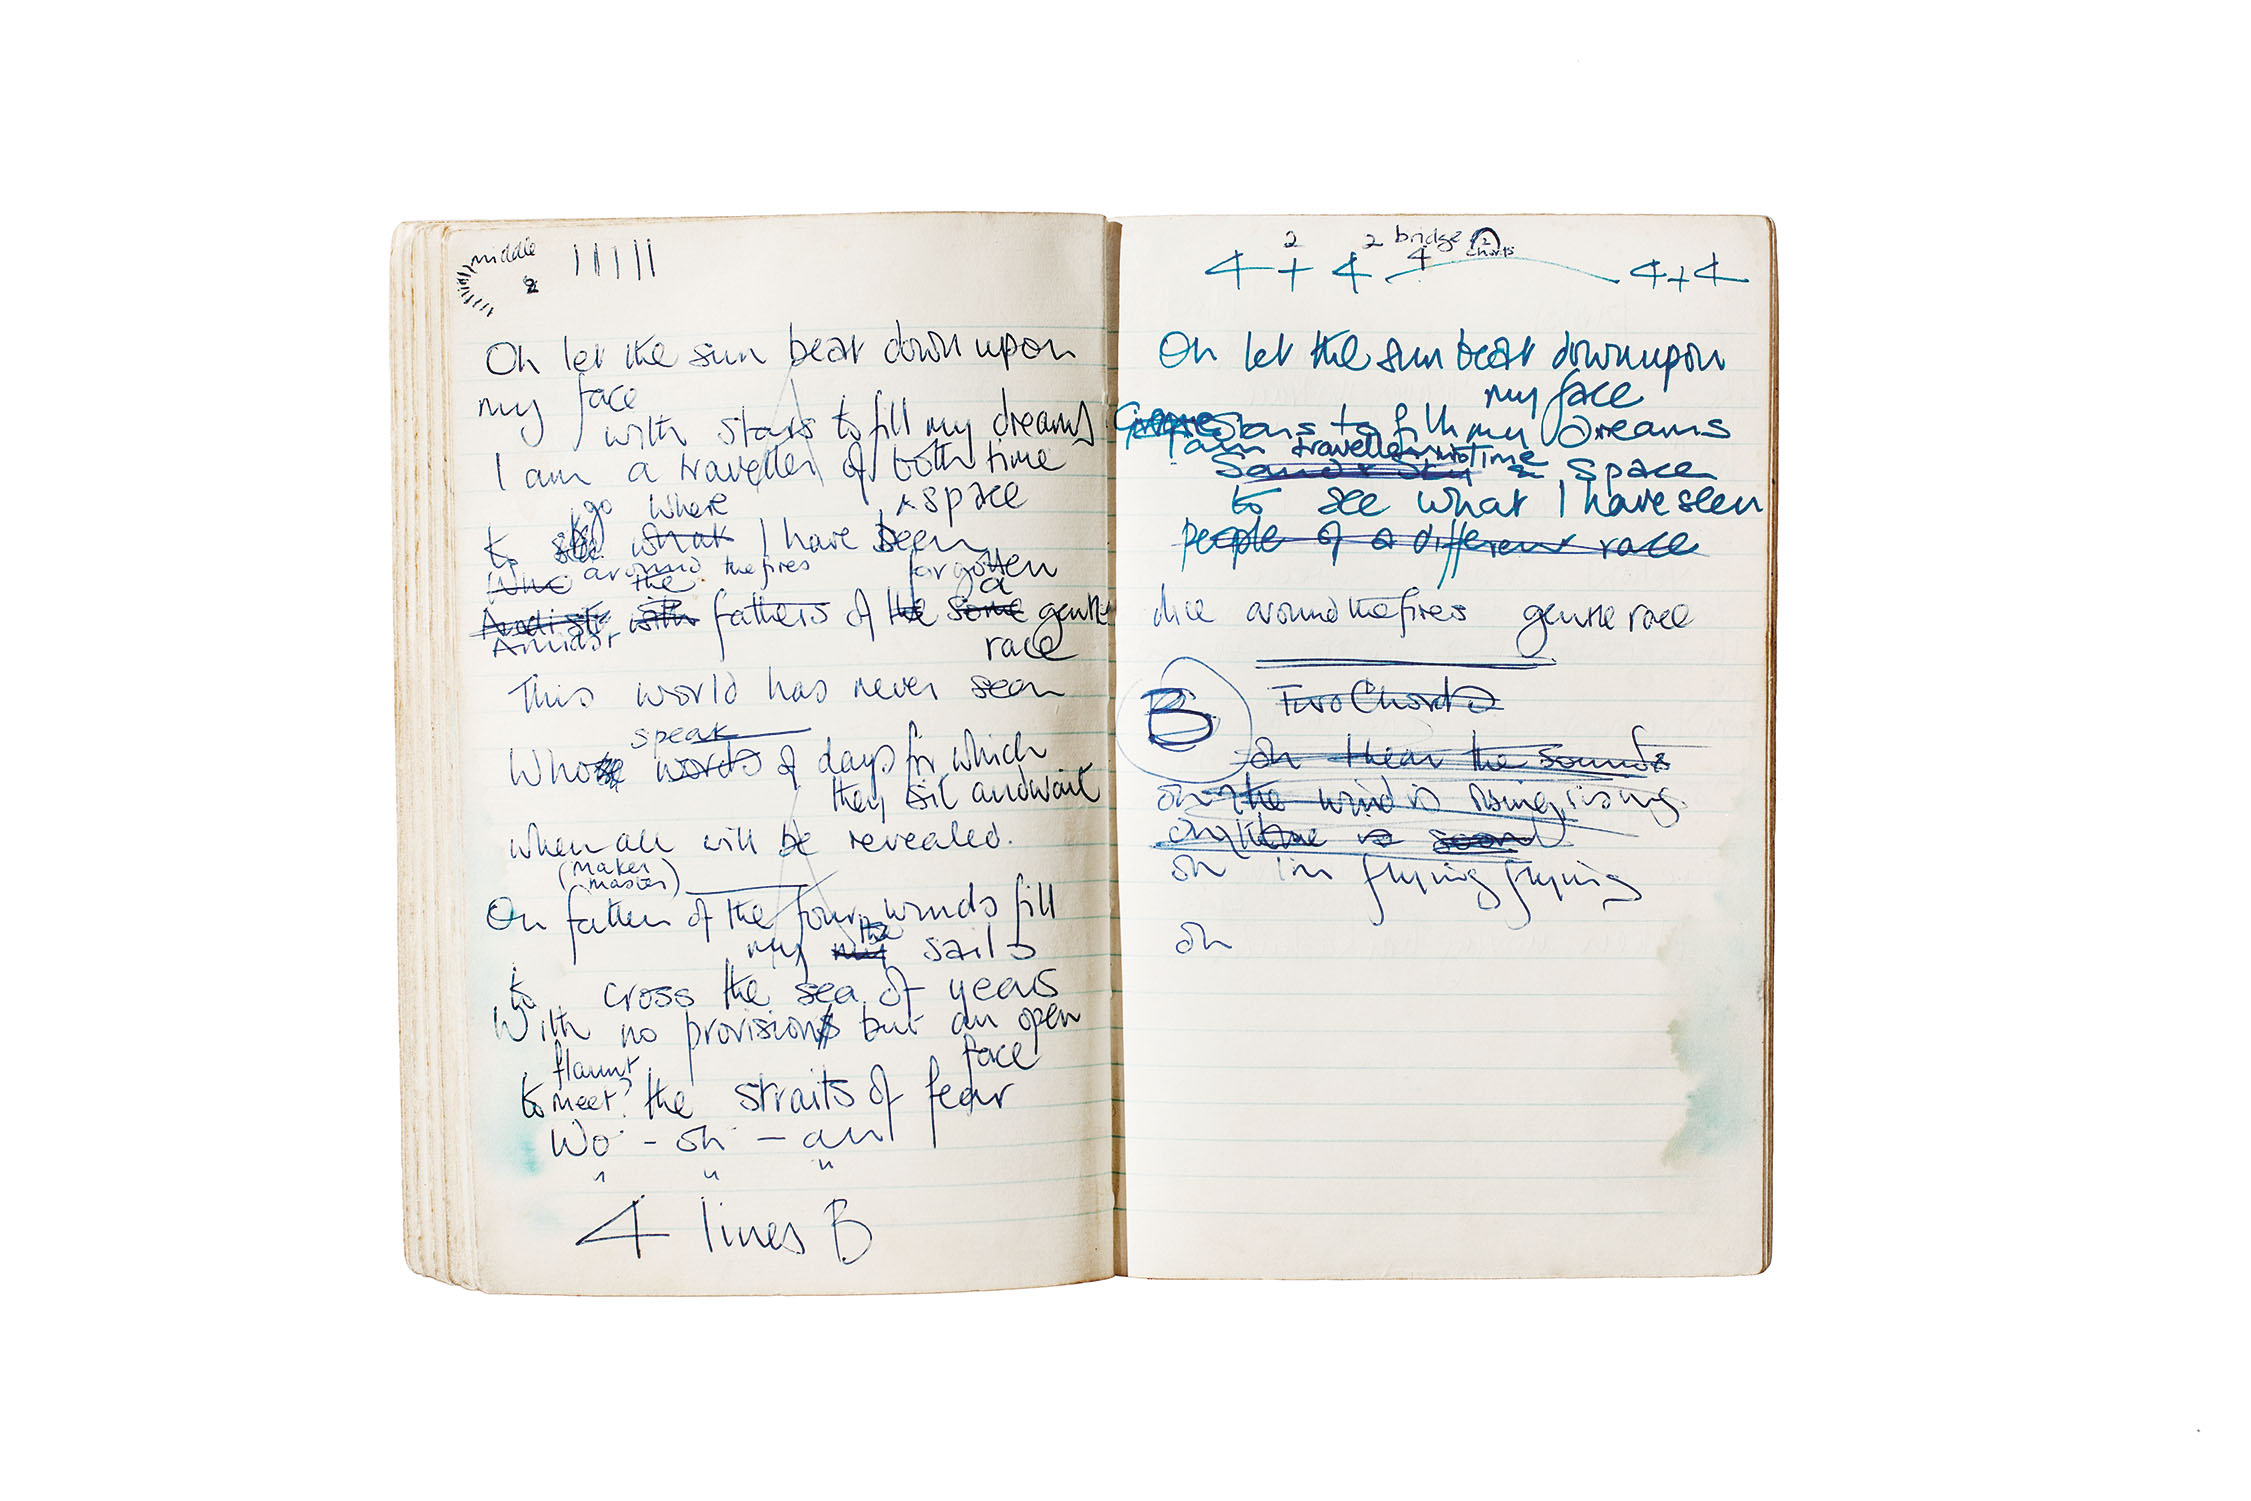 middle
2
Oh let the sun beat down upon
my face
with stars to fill my dreams
I am a traveller of both time
& space
go where
to see what I have been
Who around the fires forgotten
the a
with fathers of the some gentle
Amidst race
This world has never seen
speak
Whose words of days for which
they sit and wait
when all will be revealed.
(maker
master)
Oh father of the four winds fill
the
my my sails
to cross the sea of years
With no provisions but an open
face
flaunt
to meet? the straits of fear
Wo - oh - an
" " "
4 lines B
2 2 bridge 2
4 + 4 4 chords 4+4
Oh let the sun beat down upon
my face
Stars to fill my Dreams
I am traveller into Time
Sand & Sky & space
to see what I have seen
people of a different race
around the fires gentle race
B Two Chords
oh I hear the sounds
oh the wind is rising, rising
time is soon
oh I'm flying flying
oh